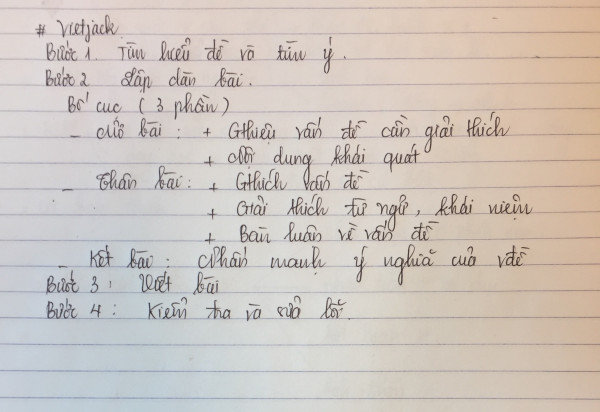 # Vietjack
Bước 1. Tìm hiểu đề và tìm ý.
Bước 2 Lập dàn bài.
Bố cục (3 phần)
- Mở bài : + Gthiệu vấn đề cần giải thích
+ Nội dung khái quát
- Thân bài: + Gthích vấn đề
+ Giải thích từ ngữ, khái niệm
+ Bàn luận về vấn đề
- Kết bài : Nhấn mạnh ý nghĩa của vđề
Bước 3 : Viết bài
Bước 4 : Kiểm tra và sửa lỗi.